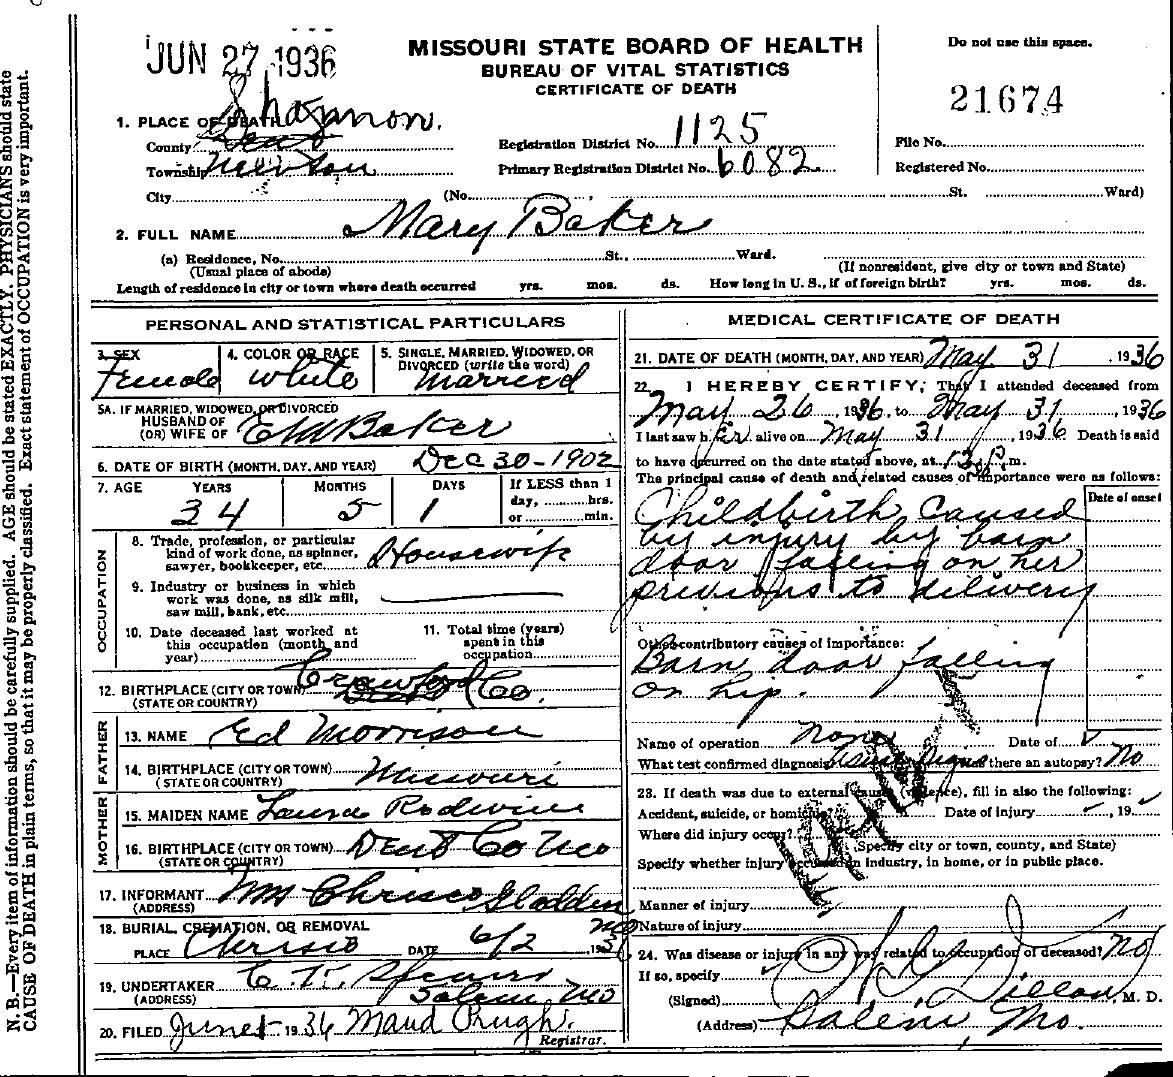 JUN 27 1936
MISSOURI STATE BOARD OF HEALTH
BUREAU OF VITAL STATISTICS
CERTIFICATE OF DEATH
Do not use this space.
21674
1. PLACE OF DEATH
Shannon.
County Dent
Township Newton
City (No. St. Ward)
Registration District No. 1125
Primary Registration District No. 6082
File No.
Registered No.
2. FULL NAME Mary Baker
(a) Residence, No. St., Ward.
(Usual place of abode) (If nonresident, give city or town and State)
Length of residence in city or town where death occurred yrs. mos. ds. How long in U. S., if of foreign birth? yrs. mos. ds.
PERSONAL AND STATISTICAL PARTICULARS
3. SEX Female
4. COLOR OR RACE white
5. SINGLE, MARRIED, WIDOWED, OR DIVORCED (write the word) Married
5A. IF MARRIED, WIDOWED, OR DIVORCED
HUSBAND OF
(OR) WIFE OF E M Baker
6. DATE OF BIRTH (MONTH, DAY, AND YEAR) Dec 30-1902
7. AGE YEARS MONTHS DAYS If LESS than 1
day, hrs.
or min.
34 5 1
OCCUPATION
8. Trade, profession, or particular
kind of work done, as spinner,
sawyer, bookkeeper, etc. Housewife
9. Industry or business in which
work was done, as silk mill,
saw mill, bank, etc.
10. Date deceased last worked at
this occupation (month and
year)
11. Total time (years)
spent in this
occupation
12. BIRTHPLACE (CITY OR TOWN) Crawford Co.
(STATE OR COUNTRY)
FATHER
13. NAME Ed Morrison
14. BIRTHPLACE (CITY OR TOWN) Missouri
(STATE OR COUNTRY)
MOTHER
15. MAIDEN NAME Laura
16. BIRTHPLACE (CITY OR TOWN) Dent Co Mo
(STATE OR COUNTRY)
17. INFORMANT Wm Chrisco Gladden
(ADDRESS) Mo
18. BURIAL, CREMATION, OR REMOVAL
PLACE Chrisco DATE 6/2, 193
19. UNDERTAKER
(ADDRESS) Salem, Mo
20. FILED June 1 1936 Maud Pugh.
Registrar.
MEDICAL CERTIFICATE OF DEATH
21. DATE OF DEATH (MONTH, DAY, AND YEAR) May 31, 1936
22. I HEREBY CERTIFY, That I attended deceased from
May 26, 1936, to May 31, 1936
I last saw her alive on May 31, 1936 Death is said
to have occurred on the date stated above, at m.
The principal cause of death and related causes of importance were as follows:
Date of onset
Childbirth caused
by injury by barn
door falling on her
previous to delivery
Other contributory causes of importance:
Barn door falling
on hip.
Name of operation none Date of
What test confirmed diagnosis? Was there an autopsy? No
23. If death was due to external causes (violence), fill in also the following:
Accident, suicide, or homicide? Date of injury, 19
Where did injury occur?
(Specify city or town, county, and State)
Specify whether injury occurred in industry, in home, or in public place.
Manner of injury
Nature of injury
24. Was disease or injury in any way related to occupation of deceased? No
If so, specify
(Signed) Dillon, M. D.
(Address) Salem, Mo.
N. B.—Every item of information should be carefully supplied. AGE should be stated EXACTLY. PHYSICIANS should state
CAUSE OF DEATH in plain terms, so that it may be properly classified. Exact statement of OCCUPATION is very important.